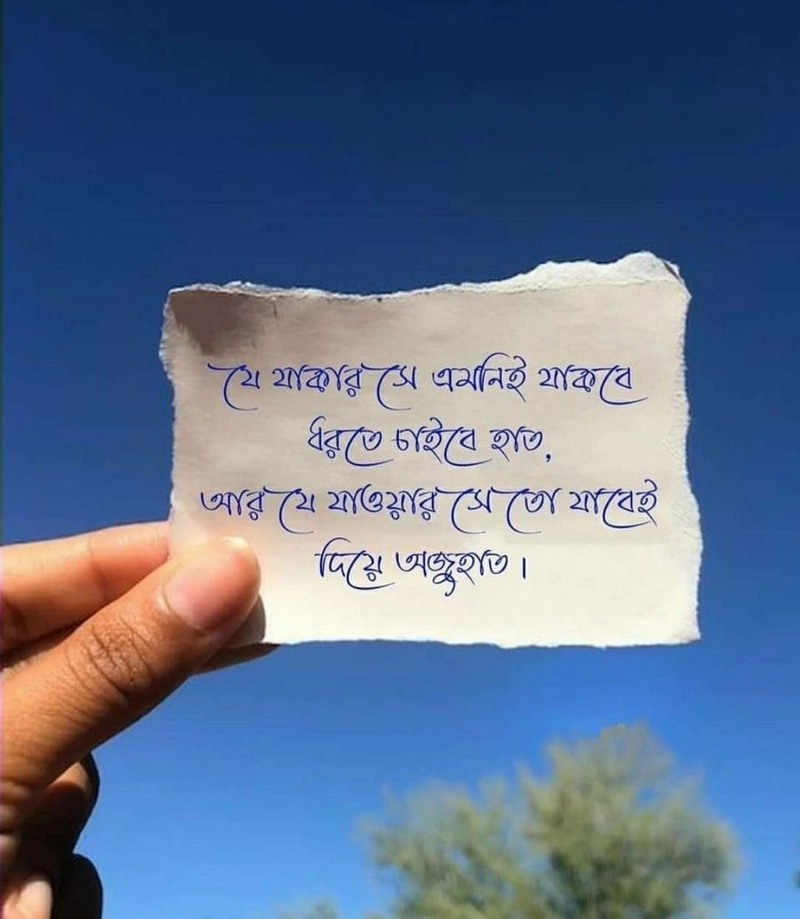 যে যাকার সে এমনিই যাকবে
ধরতে চাইবে হাত,
আর যে যাওয়ার সে তো যাবেই
দিয়ে অজুহাত।